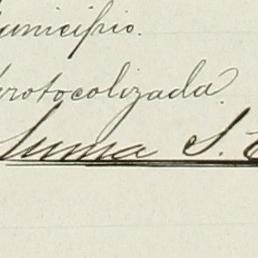 Municipio.
Protocolizada.
Suma S. E